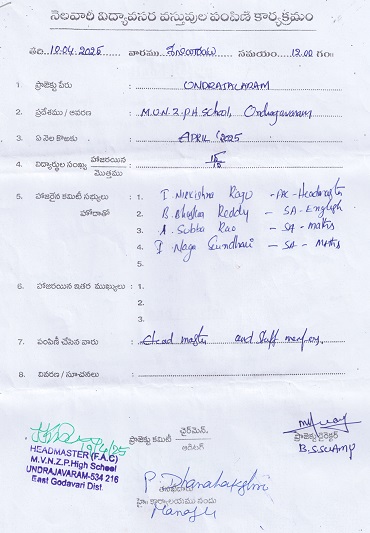 నెలవారీ విద్యావసర వస్తువుల పంపిణీ కార్యక్రమం
తేది. 19.04.2025 వారము శనివారం సమయం 12.00 గం॥
1. ప్రాజెక్టు పేరు : UNDRAJAVARAM
2. ప్రదేశము / ఆవరణ : M.V.N.Z.P.H School, Undrajavaram
3. ఏ నెల కొఱకు : APRIL '2025
4. విద్యార్థుల సంఖ్య హాజరయిన / మొత్తము :
5. హాజరైన కమిటీ సభ్యులు : 1. Raju - FAC - Headmaster
హోదాతో 2. B. Bhaskar Reddy - SA - English
3. A. Subba Rao - SA - maths
4. Naga - SA - Maths
5.
6. హాజరయిన ఇతర ముఖ్యులు : 1.
2.
3.
7. పంపిణీ చేసిన వారు : Head master and Staff
8. వివరణ / సూచనలు :
19/4/25
HEADMASTER (F.A.C)
M.V.N.Z.P.High School
UNDRAJAVARAM-534 216
East Godavari Dist.
ప్రాజెక్టు కమిటీ చైర్‌మెన్.
ఆడిటర్
ప్రాజెక్టు డైరెక్టర్
P. Dhanalakshmi
హై కార్యాలయము నందు
Manager